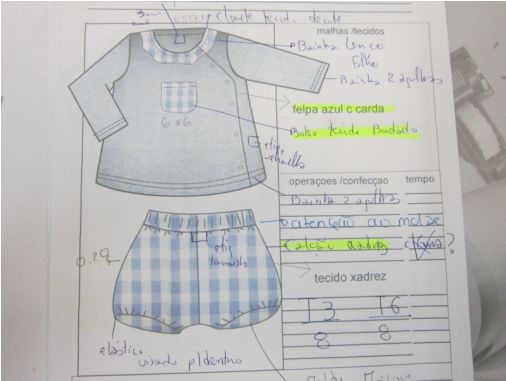 malhas /tecidos
Bainha Lenço
folho
Bainha 2 agulhas
felpa azul c carda
Bolso tecido Bordado
6 x 6
vermelha
operaçoes /confecçao tempo
Bainha 2 agulhas
atenção ao molde
etiq
Calção xadrez
?
tamanho
tecido xadrez
T3 T6
8 8
elástico
virado p/dentro